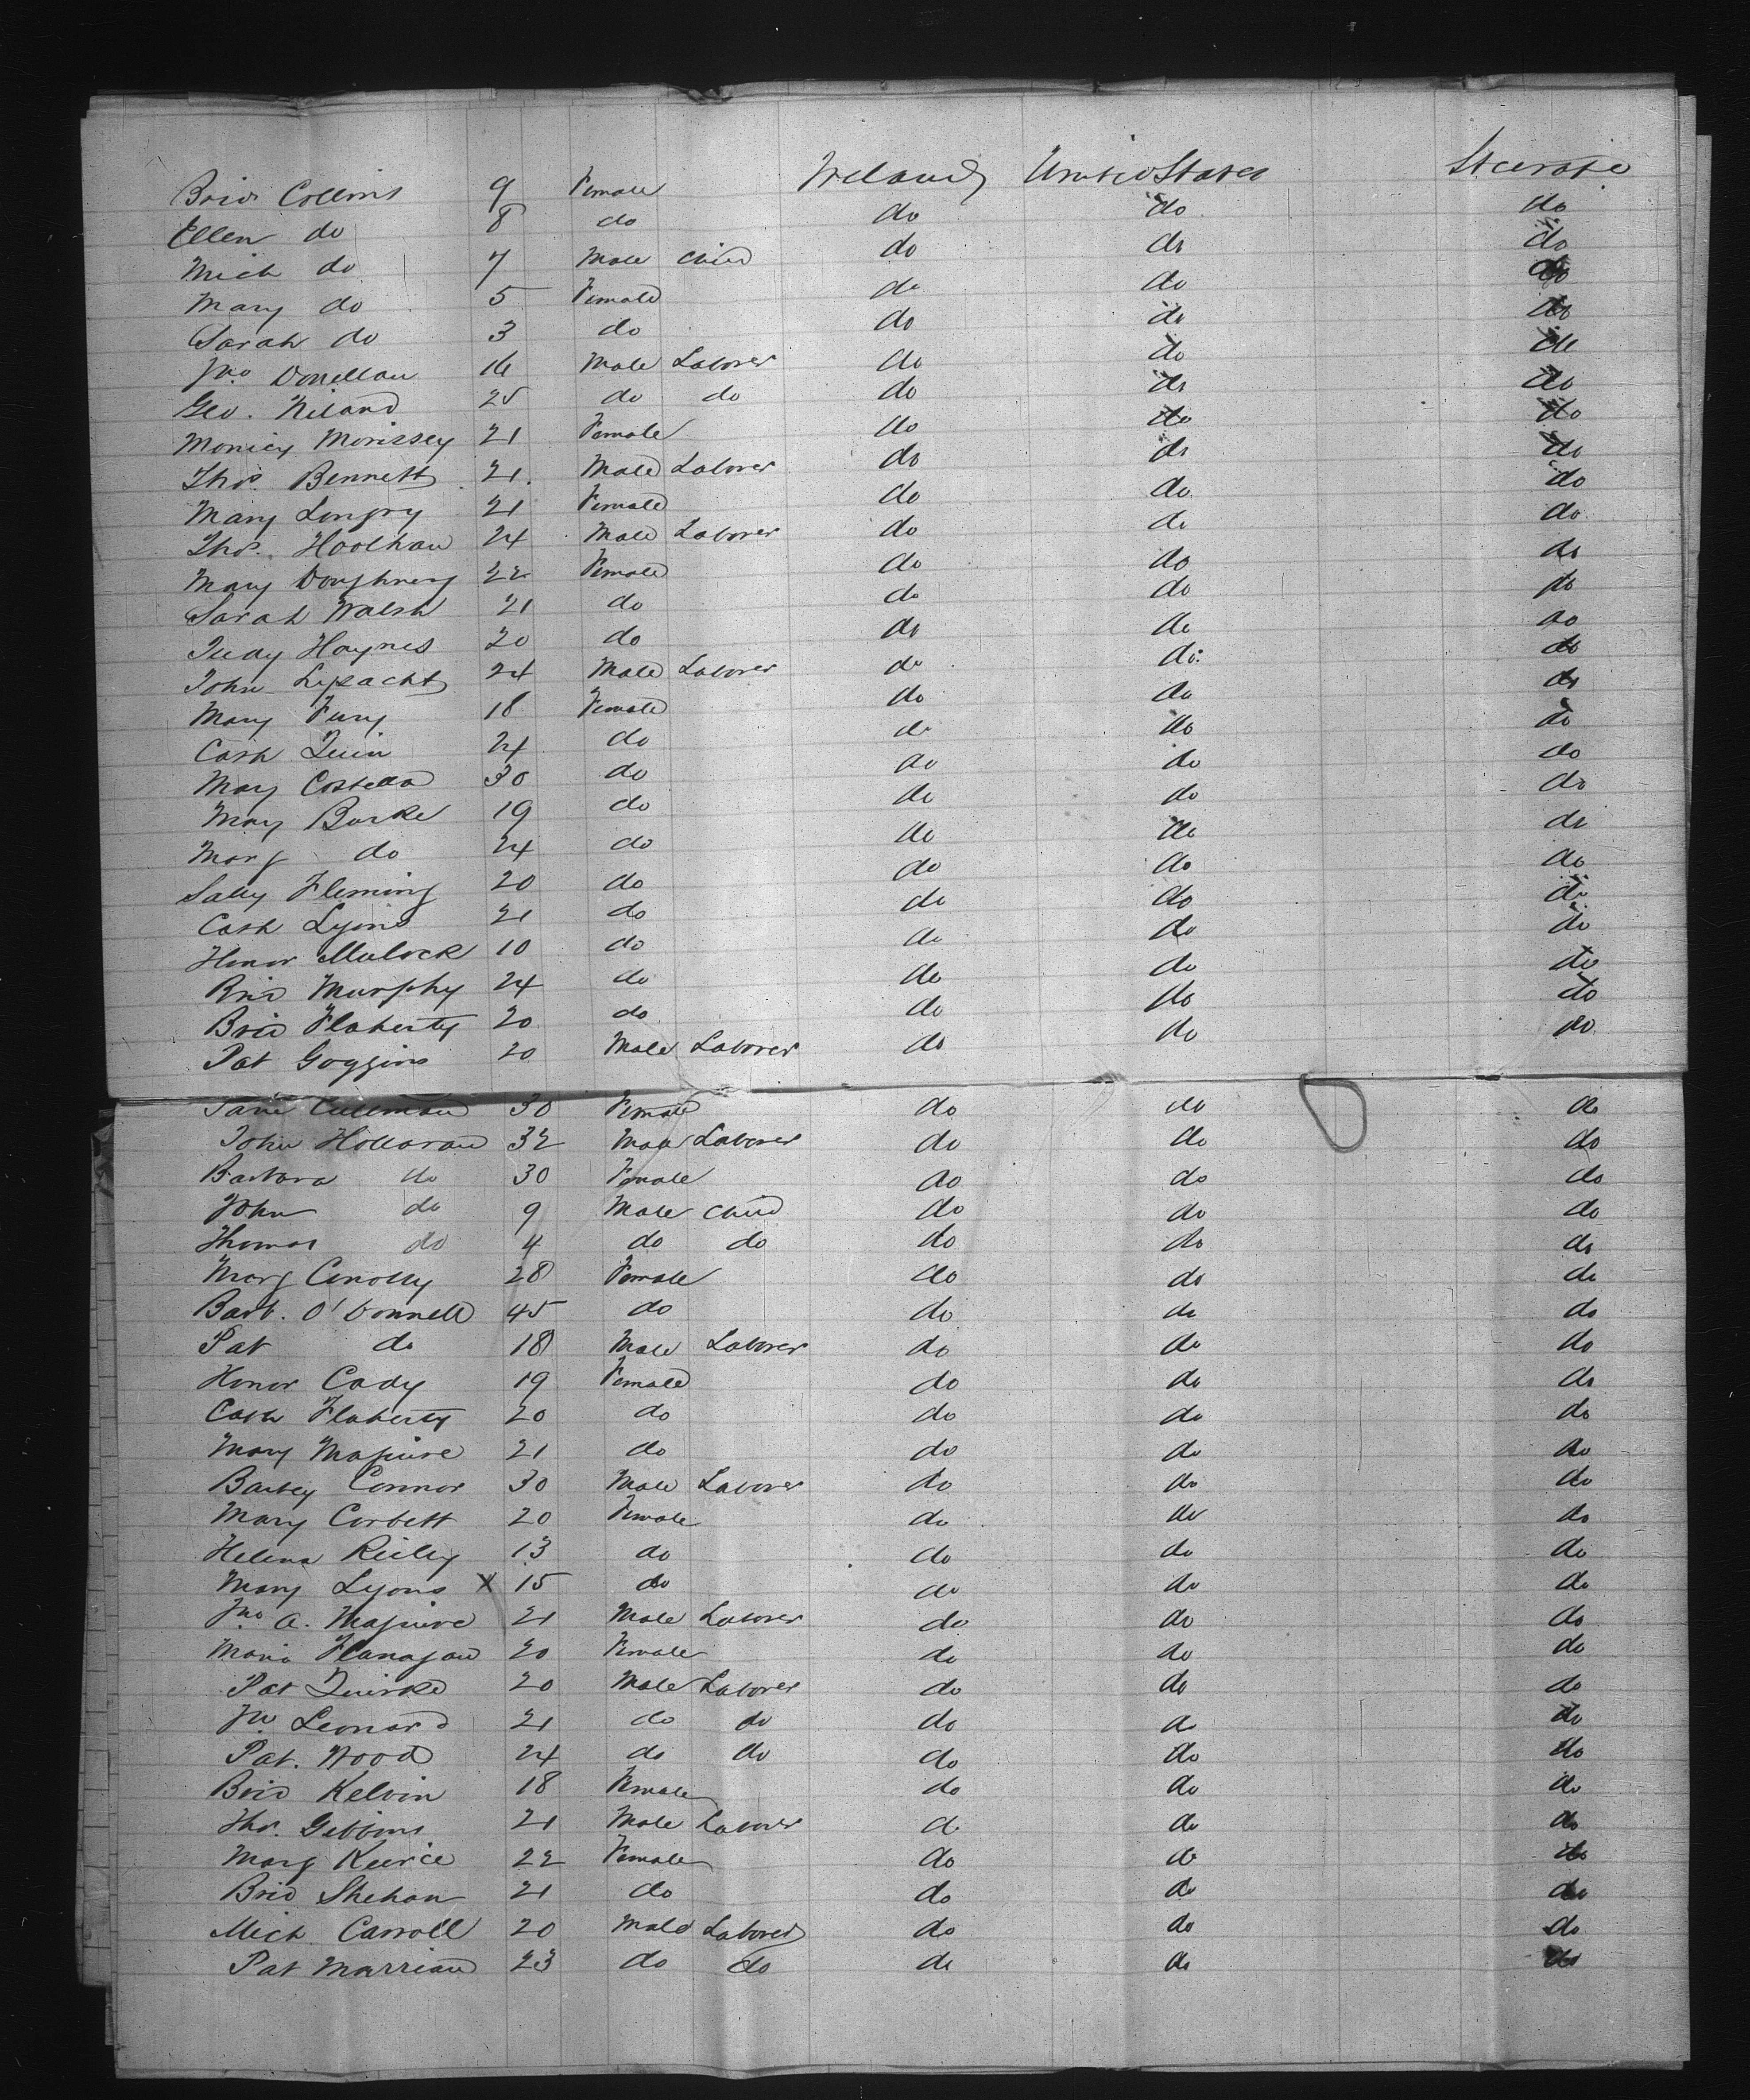 Brid Collins 9 Female Ireland United States Steerage
Ellen do 8 do do do do
Mich do 7 Male Child do do do
Mary do 5 Female do do do
Sarah do 3 do do do do
Jno Donellan 16 Male Laborer do do do
Geo. Niland 25 do do do do do
Monicy Morissey 21 Female do do do
Thos. Bennett 21. Male Laborer do do do
Mary 21 Female do do do
Thos. Hoolhan 24 Male Laborer do do do
Mary Doughney 22 Female do do do
Sarah Walsh 21 do do do do
Judy Haynes 20 do do do do
John 24 Male Laborer do do do
Mary Fury 18 Female do do do
Cath Quin 24 do do do do
Mary Costello 30 do do do do
Mary Burke 19 do do do do
Marg do 24 do do do do
Sally Fleming 20 do do do do
Cath Lyons 21 do do do do
Honor Mulock 10 do do do do
Brid Murphy 24 do do do do
Brid Flaherty 20 do do do do
Pat Goggins 20 Male Laborer do do do
Jane Cullman 30 Female do do do
John Holloran 32 Male Laborer do do do
Barbara do 30 Female do do do
John do 9 Male Child do do do
Thomas do 4 do do do do do
Marg Conolly 28 Female do do do
Barb. O'Donnell 45 do do do do
Pat do 18 Male Laborer do do do
Honor Cady 19 Female do do do
Cath Flaherty 20 do do do do
Mary Maguire 21 do do do do
Bartey Connor 30 Male Laborer do do do
Mary Corbett 20 Female do do do
Helena Reiley 13 do do do do
Mary Lyons X 15 do do do do
Jno A. Maguire 21 Male Laborer do do do
Maria Flanagan 20 Female do do do
Pat Quirke 20 Male Laborer do do do
Jno Leonard 21 do do do do do
Pat. Wood 24 do do do do do
Brid Kelvin 18 Female do do do
Thos. Gibbins 21 Male Laborer do do do
Marg Keirce 22 Female do do do
Brid Shehan 21 do do do do
Mich Carroll 20 Male Laborer do do do
Pat Marrian 23 do do do do do